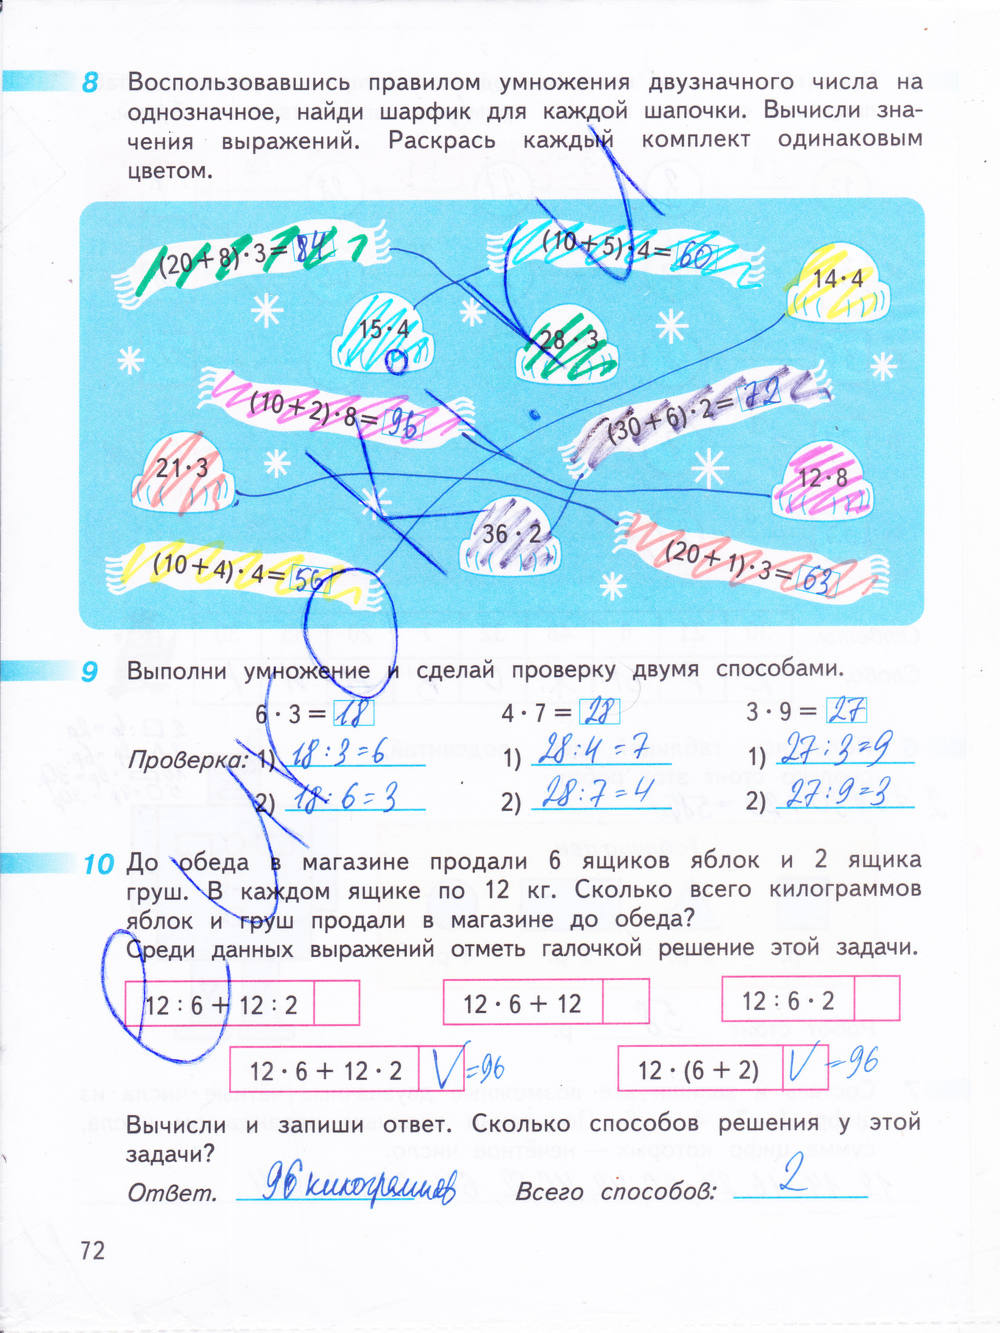 8 Воспользовавшись правилом умножения двузначного числа на
однозначное, найди шарфик для каждой шапочки. Вычисли зна-
чения выражений. Раскрась каждый комплект одинаковым
цветом.
(20+8)·3= 84
(10+5)·4= 60
14·4
15·4
28·3
(10+2)·8= 96
(30+6)·2= 72
21·3
12·8
36·2
(10+4)·4= 56
(20+1)·3= 63
9 Выполни умножение и сделай проверку двумя способами.
6 · 3 = 18 4 · 7 = 28 3 · 9 = 27
Проверка: 1) 18:3=6 1) 28:4=7 1) 27:3=9
2) 18:6=3 2) 28:7=4 2) 27:9=3
10 До обеда в магазине продали 6 ящиков яблок и 2 ящика
груш. В каждом ящике по 12 кг. Сколько всего килограммов
яблок и груш продали в магазине до обеда?
Среди данных выражений отметь галочкой решение этой задачи.
12 : 6 + 12 : 2 12 · 6 + 12 12 : 6 · 2
12 · 6 + 12 · 2 V =96 12 · (6 + 2) V =96
Вычисли и запиши ответ. Сколько способов решения у этой
задачи?
Ответ. 96 килограммов Всего способов: 2
72